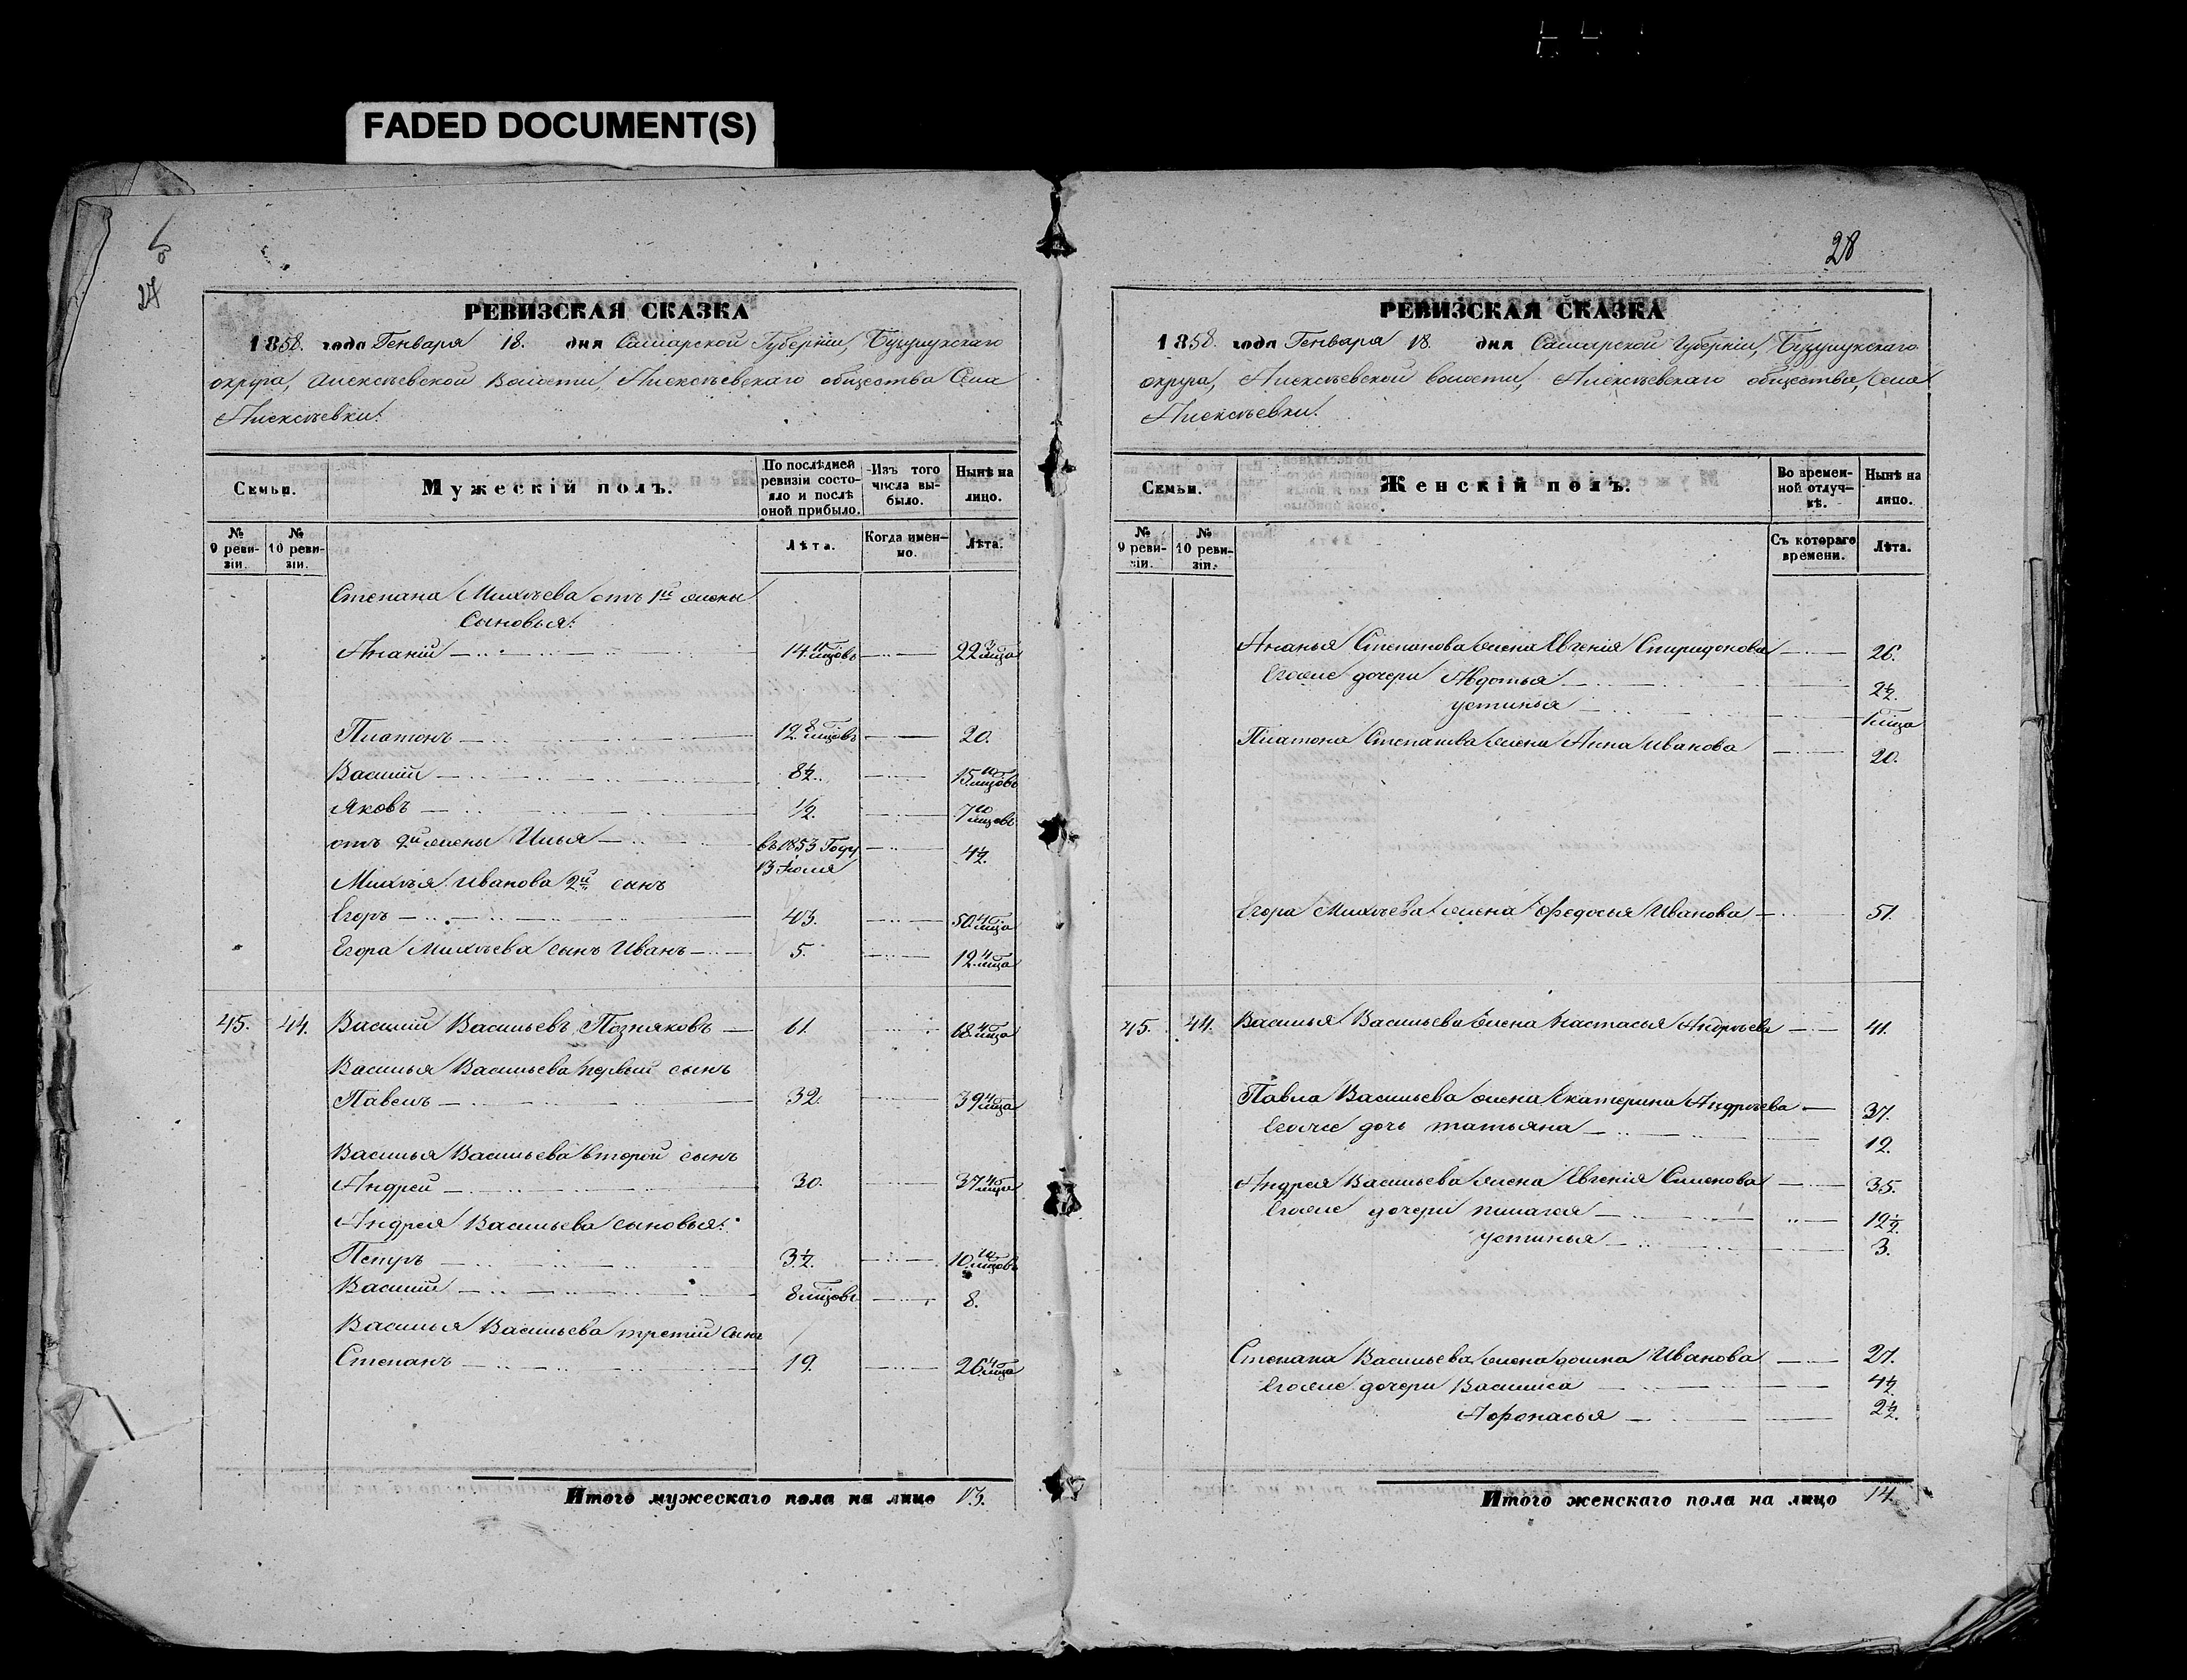 FADED DOCUMENT(S)
27
РЕВИЗСКАЯ СКАЗКА
1858. года Генваря 18. дня Самарской Губернiи, Бузулукскаго
округа, Алексѣевской Волости, Алексѣевскаго общества Села
Алексѣевки.
Семьи.
Мужескiй полъ.
По послѣдней ревизiи состояло и послѣ оной прибыло.
Изъ того числа выбыло.
Нынѣ на лицо.
№ 9 ревизiи.
№ 10 ревизiи.
Лѣта.
Когда именно.
Лѣта.
Степана Михѣева отъ 1й жены
Сыновья:
Ананiй 14. 11 мцовъ 22 3 мца
Платонъ 12. 8 мцовъ 20.
Василiй 8½. 15 10 мцовъ
Яковъ ½. 7 10 мцовъ
отъ 2й жены Илья въ 1853 Году 13 Июля 4½.
Михѣя Иванова 2й сынъ
Егоръ 43. 50 4 мца
Егора Михѣева сынъ Иванъ 5. 12. 4 мца
45. 44. Василiй Васильевъ Позняковъ 61. 68. 4 мца
Василья Васильева первый сынъ
Павелъ 32. 39 4 мца
Василья Васильева второй сынъ
Андрей 30. 37 4 мца
Андрея Васильева сыновья:
Петръ 3½. 10. 10 мцовъ
Василiй 8 мцовъ 8.
Василья Васильева третiй сынъ
Степанъ 19. 26. 4 мца
Итого мужескаго пола на лицо 13.
28
РЕВИЗСКАЯ СКАЗКА
1858. года Генваря 18. дня Самарской Губернiи, Бузулукскаго
округа, Алексѣевской волости, Алексѣевскаго общества, Села
Алексѣевки.
Семьи.
Женскiй полъ.
Во временной отлучкѣ.
Нынѣ на лицо.
№ 9 ревизiи.
№ 10 ревизiи.
Съ котораго времени.
Лѣта.
Ананья Степанова жена Евгенiя Спиридонова 26.
Егоже дочери Авдотья 2½.
Устинья 1 мца
Платона Степанова жена Анна Иванова 20.
Егора Михѣева жена Федосья Иванова 51.
45. 44. Василья Васильева жена Настасья Андрѣева 41.
Павла Васильева жена Екатерина Андрѣева 37.
Егоже дочь Татьяна 12.
Андрея Васильева жена Евгенiя Семенова 35.
Егоже дочери Пилагея 12½.
Устинья 3.
Степана Васильева жена Домна Иванова 27.
Егоже дочери Василиса 4½.
Афонасья 2½.
Итого женскаго пола на лицо 14.